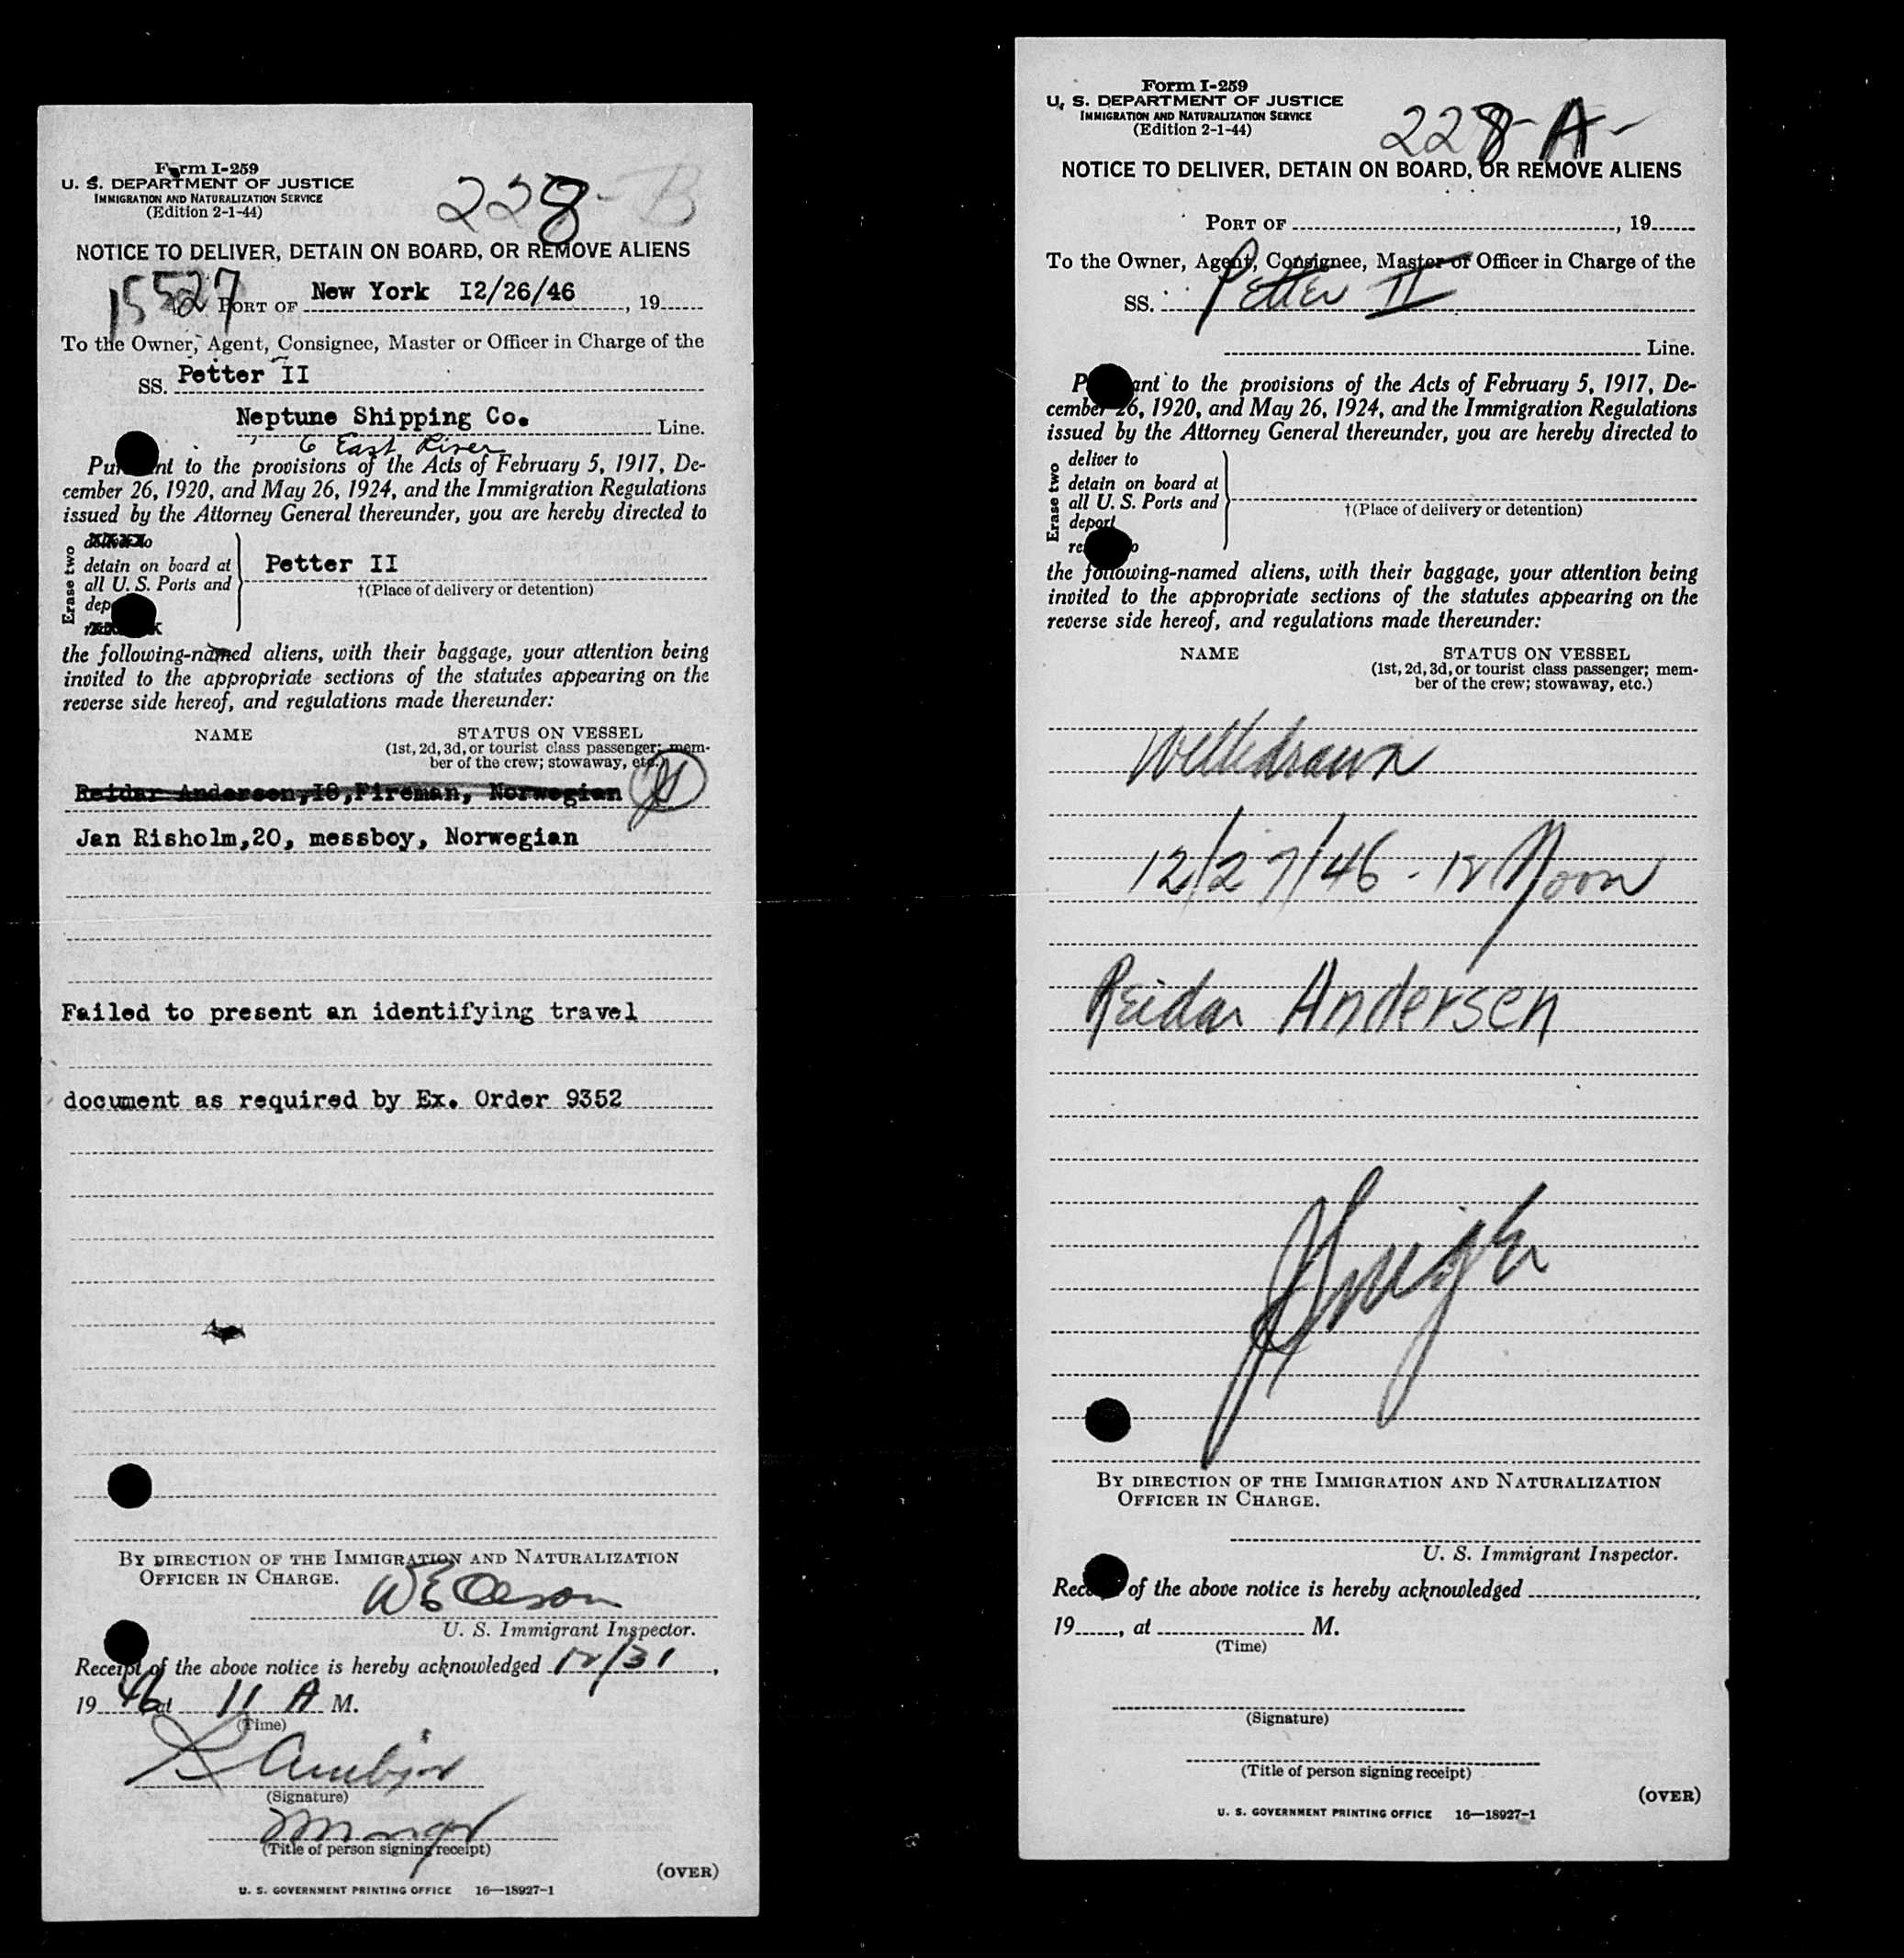 Form I-259
U. S. DEPARTMENT OF JUSTICE
IMMIGRATION AND NATURALIZATION SERVICE
(Edition 2-1-44)
228-B
NOTICE TO DELIVER, DETAIN ON BOARD, OR REMOVE ALIENS
15527
PORT OF New York I2/26/46, 19
To the Owner, Agent, Consignee, Master or Officer in Charge of the
SS. Petter II
Neptune Shipping Co. Line.
6 East River
Pursuant to the provisions of the Acts of February 5, 1917, De-
cember 26, 1920, and May 26, 1924, and the Immigration Regulations
issued by the Attorney General thereunder, you are hereby directed to
Erase two
deliver to
detain on board at
all U. S. Ports and
deport
Petter II
†(Place of delivery or detention)
the following-named aliens, with their baggage, your attention being
invited to the appropriate sections of the statutes appearing on the
reverse side hereof, and regulations made thereunder:
NAME STATUS ON VESSEL
(1st, 2d, 3d, or tourist class passenger; mem-
ber of the crew; stowaway, etc.)
Reidar Andersen,I8,Fireman, Norwegian
Jan Risholm,20, messboy, Norwegian
Failed to present an identifying travel
document as required by Ex. Order 9352
BY DIRECTION OF THE IMMIGRATION AND NATURALIZATION
OFFICER IN CHARGE.
U. S. Immigrant Inspector.
Receipt of the above notice is hereby acknowledged 12/31,
19 46 at 11 A M.
(Time)
(Signature)
(Title of person signing receipt)
(OVER)
U. S. GOVERNMENT PRINTING OFFICE 16—18927-1
Form I-259
U. S. DEPARTMENT OF JUSTICE
IMMIGRATION AND NATURALIZATION SERVICE
(Edition 2-1-44)
228-A-
NOTICE TO DELIVER, DETAIN ON BOARD, OR REMOVE ALIENS
PORT OF , 19
To the Owner, Agent, Consignee, Master or Officer in Charge of the
SS. Petter II
Line.
Pursuant to the provisions of the Acts of February 5, 1917, De-
cember 26, 1920, and May 26, 1924, and the Immigration Regulations
issued by the Attorney General thereunder, you are hereby directed to
Erase two
deliver to
detain on board at
all U. S. Ports and
deport
†(Place of delivery or detention)
the following-named aliens, with their baggage, your attention being
invited to the appropriate sections of the statutes appearing on the
reverse side hereof, and regulations made thereunder:
NAME STATUS ON VESSEL
(1st, 2d, 3d, or tourist class passenger; mem-
ber of the crew; stowaway, etc.)
Withdrawn
12/27/46 - 12 Noon
Reidar Andersen
BY DIRECTION OF THE IMMIGRATION AND NATURALIZATION
OFFICER IN CHARGE.
U. S. Immigrant Inspector.
Receipt of the above notice is hereby acknowledged ,
19 , at M.
(Time)
(Signature)
(Title of person signing receipt)
(OVER)
U. S. GOVERNMENT PRINTING OFFICE 16—18927-1